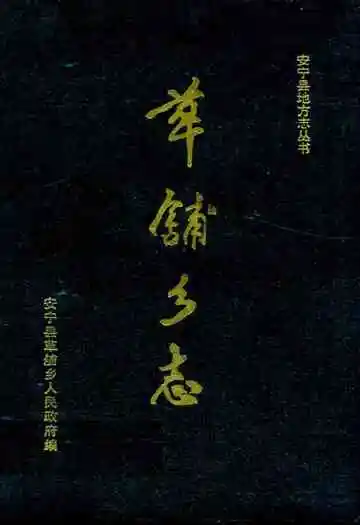 安宁县地方志丛书
草铺乡志
安宁县草铺乡人民政府编